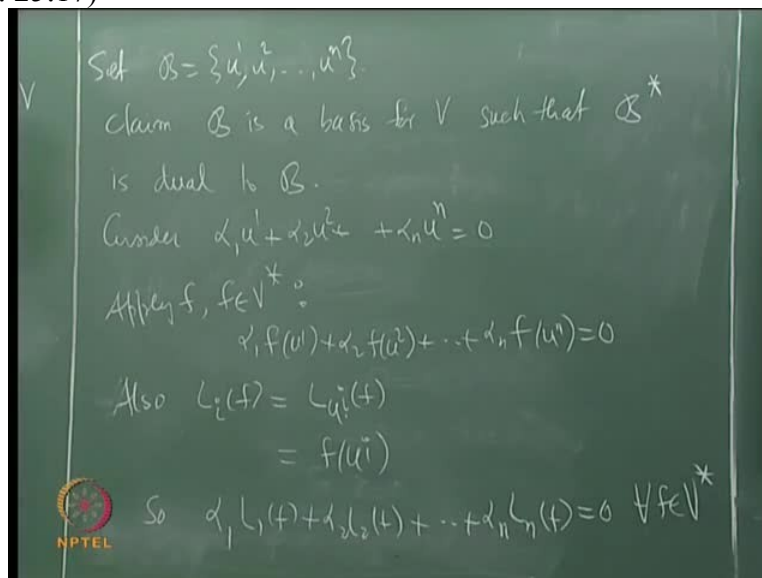 V
Set B = {u¹, u², ..., uⁿ}.
Claim B is a basis for V such that B*
is dual to B.
Consider α₁u¹ + α₂u² + + αₙuⁿ = 0
Apply f, f∈V* :
α₁f(u¹) + α₂f(u²) + ... + αₙf(uⁿ) = 0
Also Lᵢ(f) = L_{uⁱ}(f)
= f(uⁱ)
So α₁L₁(f) + α₂L₂(f) + ... + αₙLₙ(f) = 0 ∀f∈V*
NPTEL